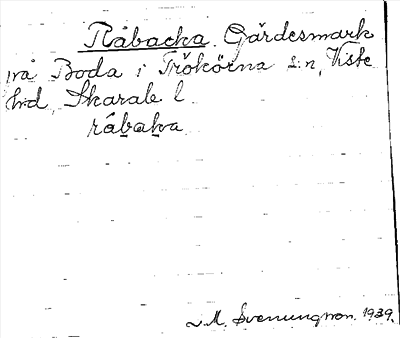 Råbacka. Gärdesmark
på Boda i Tråkörna s:n, Viste
hrd, Skarab. l.
råbaka
M. Svenungsson. 1939.